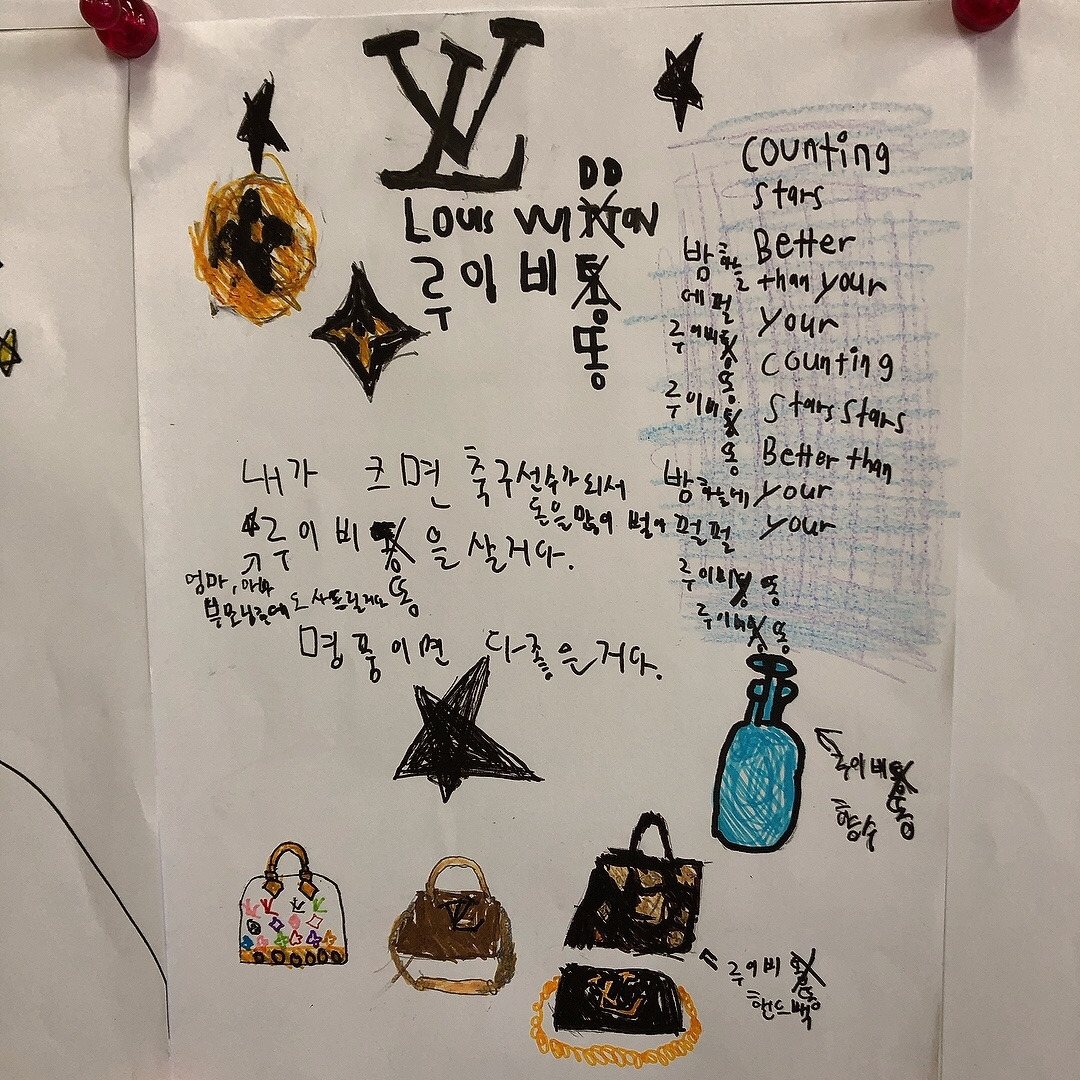 LV
DD
Louis VUITTON
루이비통
똥
counting
stars
밤하늘 Better
than your
에 펄 your
루이비통 counting
똥
루이비통 stars stars
똥 Better than
밤하늘에 your
펄펄 your
루이비통 똥
루이비통 똥
내가 크면 축구선수가 되서
돈을 많이 벌어
루이비통을 살거다.
똥
엄마, 아빠
부모님에게도 사드릴거다
명품이면 다 좋은 거다.
루이비통
똥
향수
LV
루이비통
똥
핸드백
LV